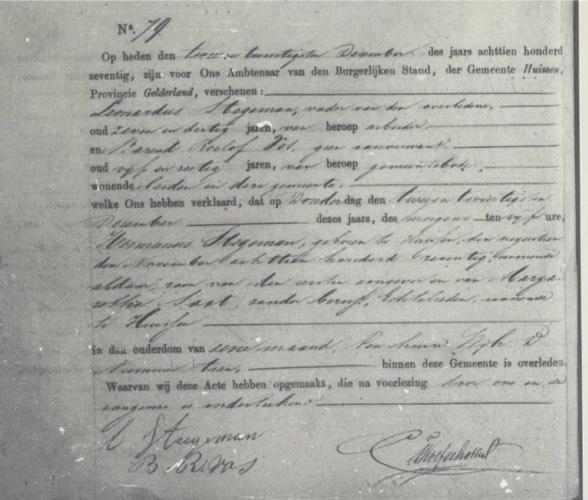 No. 79
Op heden den twee en twintigsten December des jaars achttien honderd
zeventig, zijn voor Ons Ambtenaar van den Burgerlijken Stand, der Gemeente Huissen,
Provincie Gelderland, verschenen:
Leonardus Stegeman, vader van den overledene,
oud zeven en dertig jaren, van beroep arbeider
en Barend Roelof Vos, geen aanverwant
oud vijf en jaren, van beroep gemeentebode,
wonende beiden in deze gemeente.
welke Ons hebben verklaard, dat op Donderdag den twee en twintigsten
December dezes jaars, des morgens ten vijf ure,
Hermanus Stegeman, geboren te Huissen, den negentien
den November achttien honderd zeventig, wonende
aldaar, zoon van den eersten aangever en van Marga
retha Saat, zonder beroep, Echtelieden, wonende
te Huissen
in den ouderdom van eene maand, ten huize Wijk D
nummer tien, binnen deze Gemeente is overleden.
Waarvan wij deze Acte hebben opgemaakt, die na voorlezing door ons en de
aangevers is onderteekend.
L Steegeman
B. R. Vos